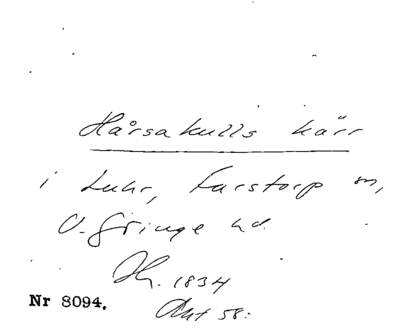 Hårsakulls kärr
i Luhr, Farstorp sn,
V. Göinge hd.
Hy. 1834
Akt 58:
Nr 8094.